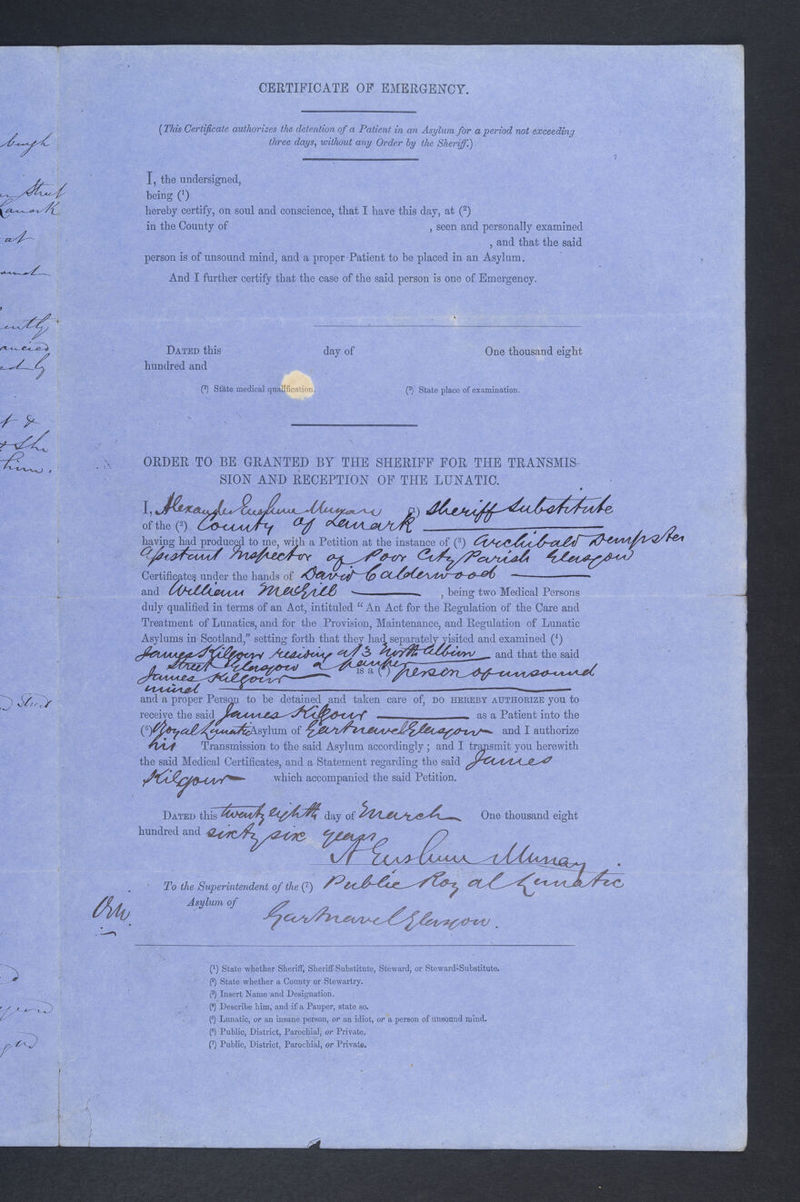 CERTIFICATE OF EMERGENCY.
(This Certificate authorizes the detention of a Patient in an Asylum for a period not exceeding
three days, without any Order by the Sheriff.)
I, the undersigned,
being (¹)
hereby certify, on soul and conscience, that I have this day, at (²)
in the County of , seen and personally examined
, and that the said
person is of unsound mind, and a proper Patient to be placed in an Asylum.
And I further certify that the case of the said person is one of Emergency.
DATED this day of One thousand eight
hundred and
(¹) State medical qualification. (²) State place of examination.
ORDER TO BE GRANTED BY THE SHERIFF FOR THE TRANSMIS-
SION AND RECEPTION OF THE LUNATIC.
I, Alexander Erskine Murray (¹) Sheriff Substitute
of the (²) County of Lanark
having had produced to me, with a Petition at the instance of (³) Archibald Dempster
Assistant Inspector of Poor City Parish Glasgow
Certificates under the hands of David Calderwood
and William MacGill , being two Medical Persons
duly qualified in terms of an Act, intituled "An Act for the Regulation of the Care and
Treatment of Lunatics, and for the Provision, Maintenance, and Regulation of Lunatic
Asylums in Scotland," setting forth that they had separately visited and examined (⁴)
James Kilgour residing at 3 North Albion and that the said
Street Glasgow a pauper
James Kilgour is a (⁵) person of unsound
mind
and a proper Person to be detained and taken care of, DO HEREBY AUTHORIZE you to
receive the said James Kilgour as a Patient into the
(⁶) Royal Lunatic Asylum of Gartnavel Glasgow and I authorize
his Transmission to the said Asylum accordingly; and I transmit you herewith
the said Medical Certificates, and a Statement regarding the said James
Kilgour which accompanied the said Petition.
DATED this twenty eighth day of March One thousand eight
hundred and sixty six years
A Erskine Murray
To the Superintendent of the (⁷) Public Royal Lunatic
Asylum of
Gartnavel Glasgow.
(¹) State whether Sheriff, Sheriff-Substitute, Steward, or Steward-Substitute.
(²) State whether a County or Stewartry.
(³) Insert Name and Designation.
(⁴) Describe him, and if a Pauper, state so.
(⁵) Lunatic, or an insane person, or an idiot, or a person of unsound mind.
(⁶) Public, District, Parochial, or Private.
(⁷) Public, District, Parochial, or Private.